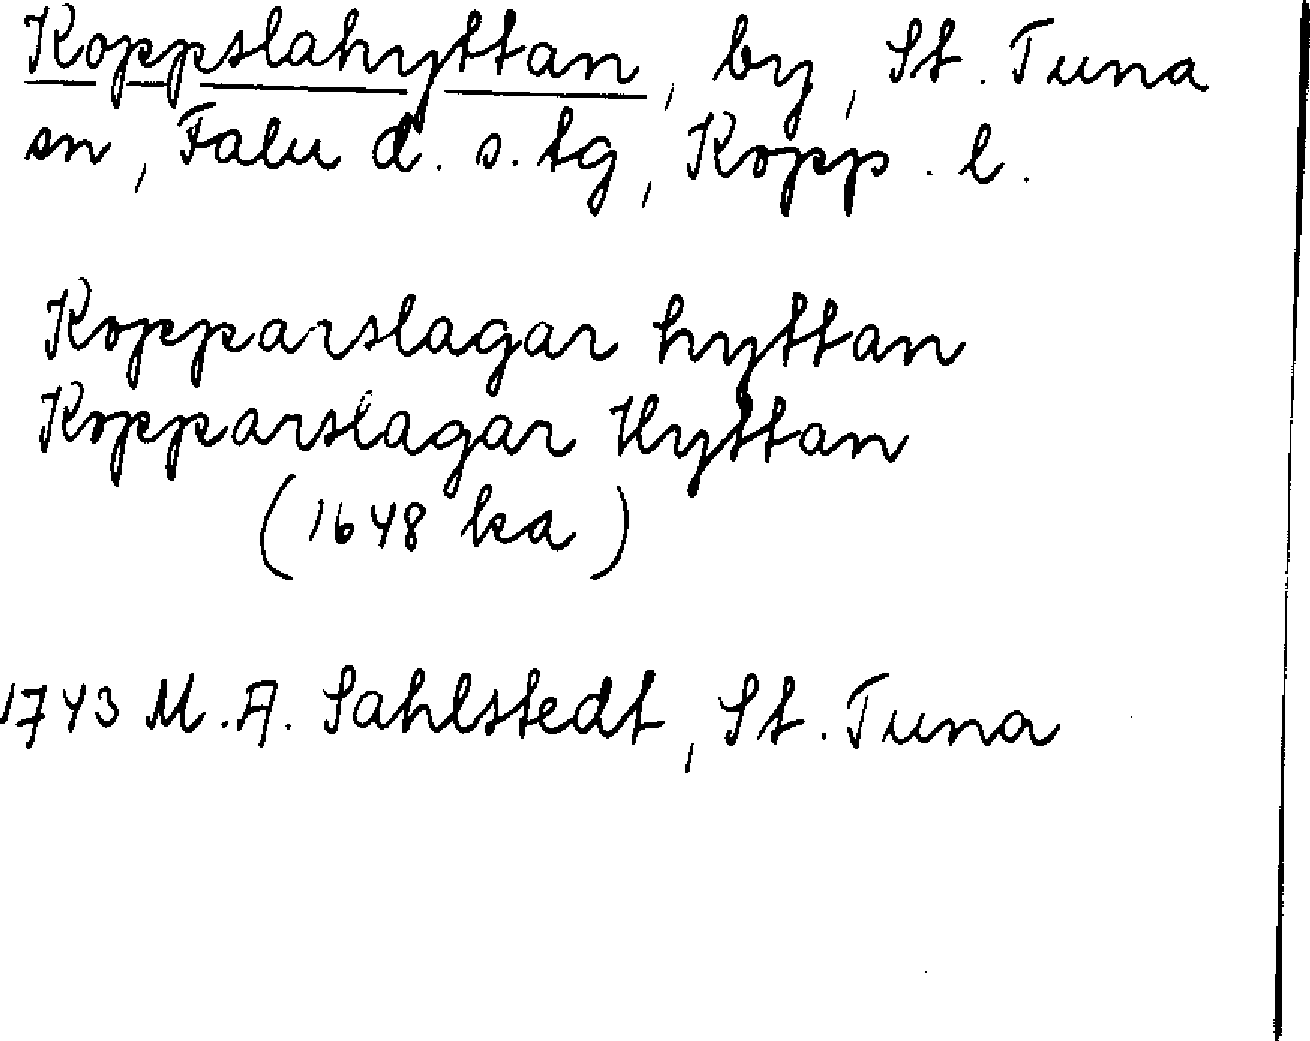 Koppslahyttan, by, St. Tuna
sn, Falu d. s. tg, Kopp. l.
Kopparslagar hyttan
Kopparslagar Hyttan
(1648 ka)
1743 M. A. Sahlstedt, St. Tuna